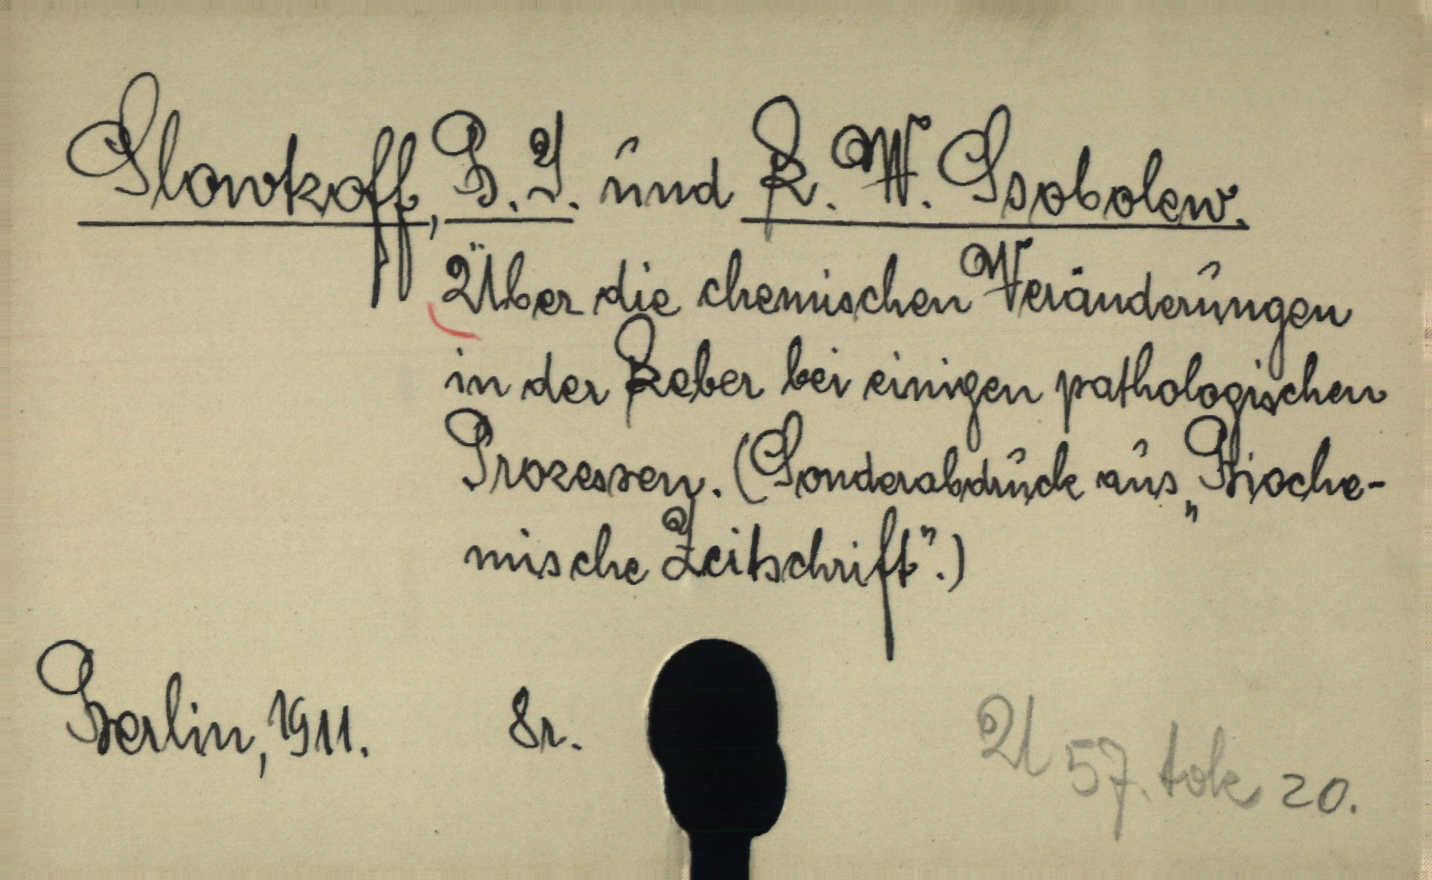 Slowtzoff, B. I. und L. W. Ssobolew.
Über die chemischen Veränderungen
in der Leber bei einigen pathologischen
Prozessen. (Sonderabdruck aus „Bioche-
mische Zeitschrift".)
Berlin, 1911. 8r.
U 57. tok 20.